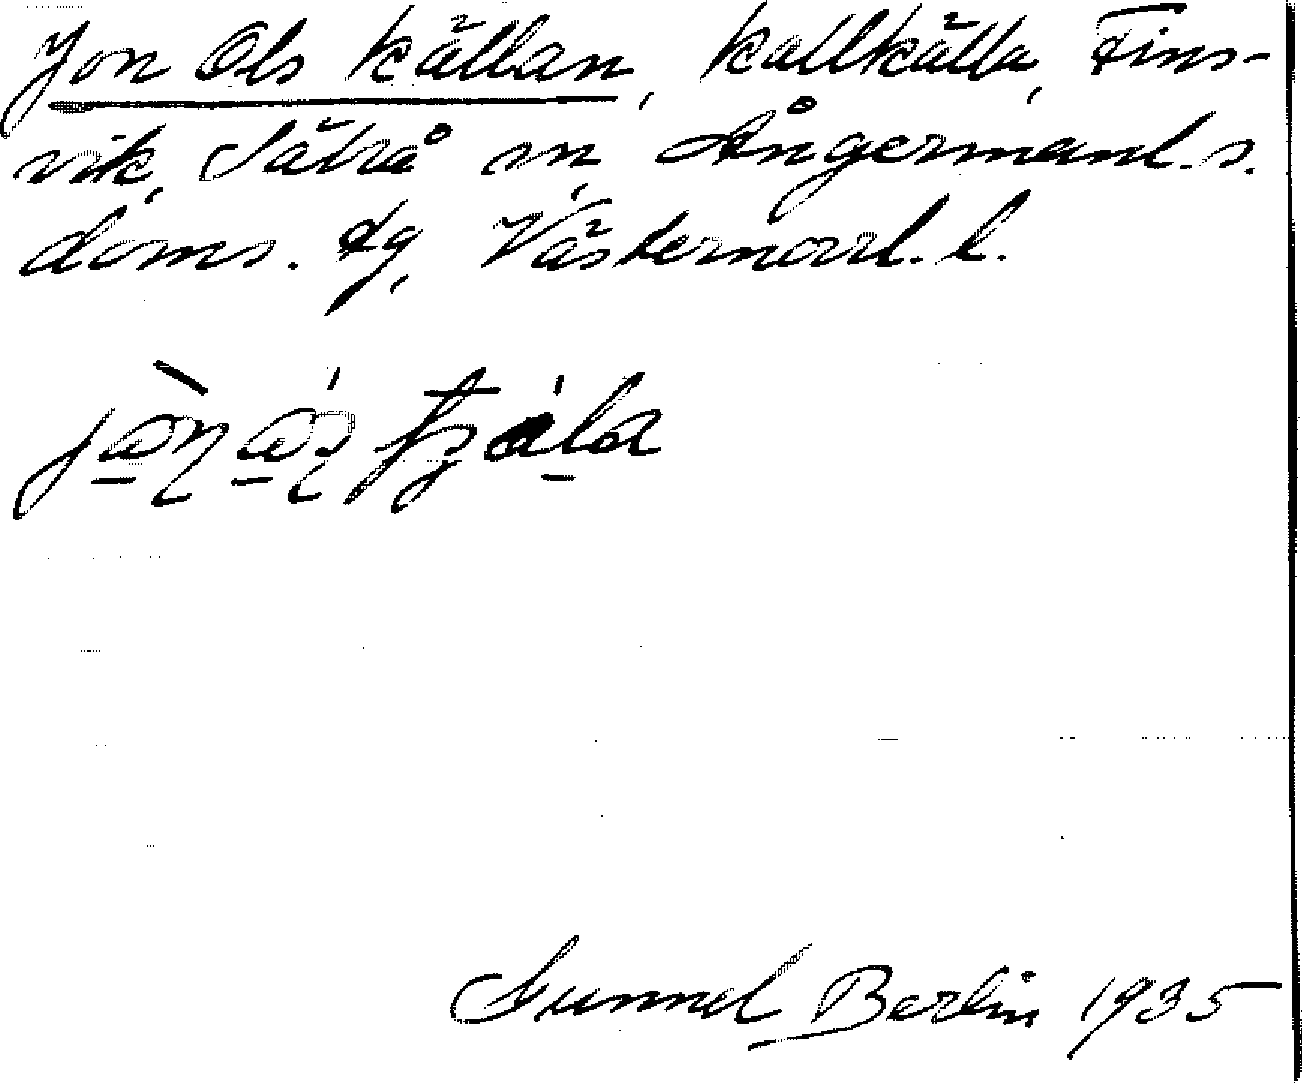 Jon Ols källan, kallkälla, Fins-
vik, Säbrå sn, Ångermanl. s.
doms. dg, Västernorrl. l.
Gunnel Berlin 1935